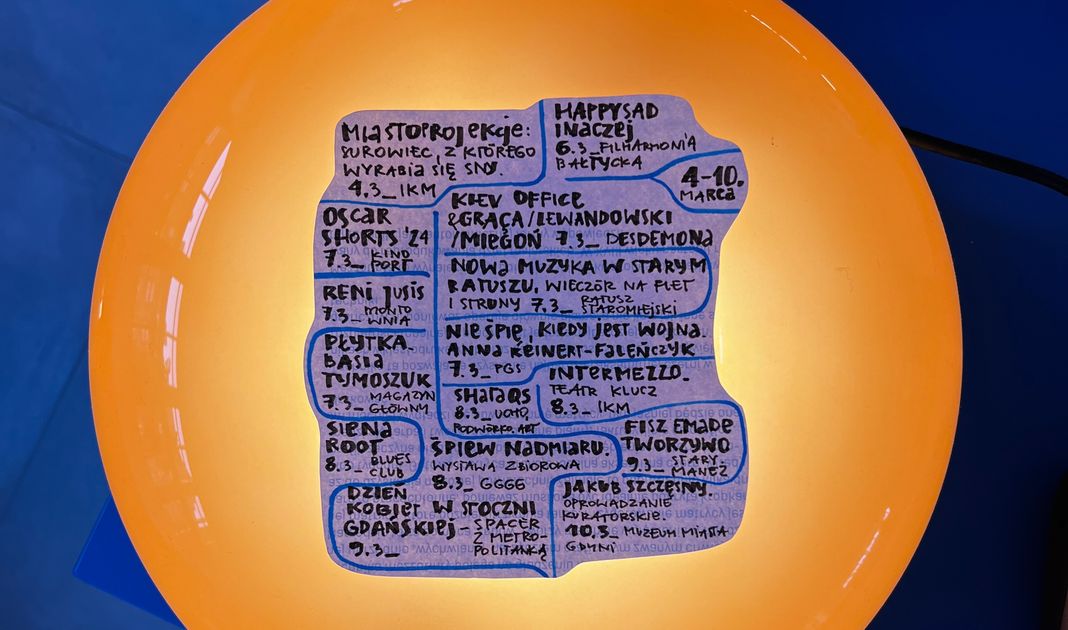 Miastoprojekcje:
surowiec, z którego
wyrabia się sny.
4.3_ IKM
Happysad
inaczej
6.3_ Filharmonia
Bałtycka
4-10.
marca
Oscar
Shorts '24
7.3_ Kino
Port
Kiev Office
&Graça/Lewandowski
/Miegoń 7.3_ Desdemona
Nowa muzyka w starym
ratuszu. Wieczór na flet
i struny 7.3_ Ratusz
Staromiejski
Reni Jusis
7.3_ Monto
wnia
Nie śpię, kiedy jest wojna.
Anna Reinert-Faleńczyk
7.3_ PGS
Płytka.
Basia
Tymoszuk
7.3_ Magazyn
Główny
Shataqs
8.3_ Ucho,
podwórko.art
Intermezzo_
Teatr Klucz
8.3_ IKM
Siena
Root
8.3_ Blues
Club
Śpiew nadmiaru.
Wystawa zbiorowa
8.3_ GGGG
Fisz Emade
Tworzywo
9.3_ Stary
Maneż
Dzień
Kobiet w Stoczni
Gdańskiej – spacer
z Metro-
politanką
9.3_
Jakub Szczęsny.
Oprowadzanie
kuratorskie.
10.3_ Muzeum Miasta
Gdyni